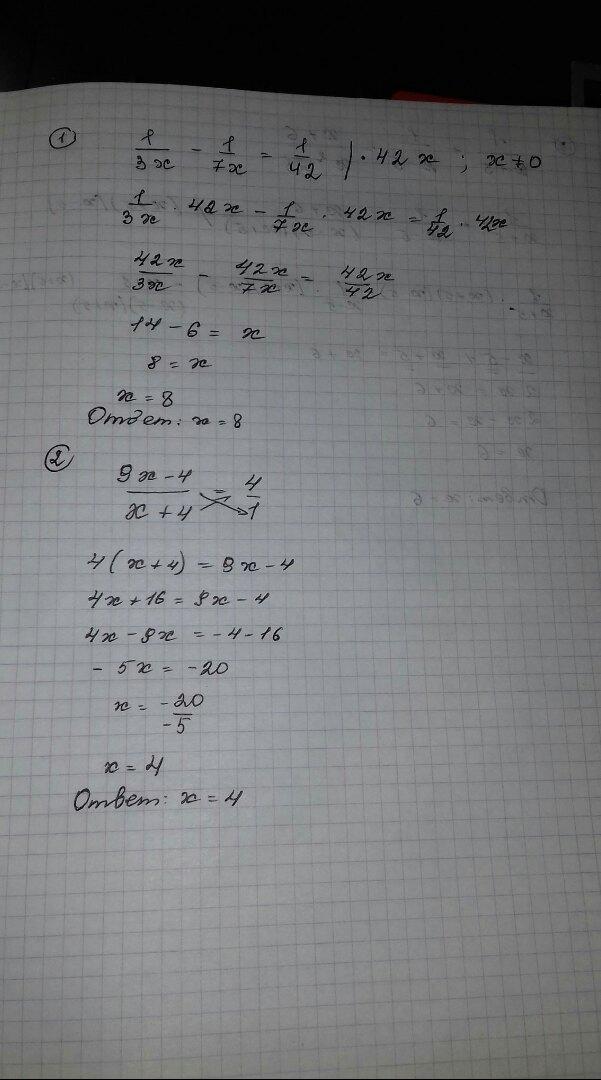 1
1/3x - 1/7x = 1/42 | · 42x ; x≠0
1/3x · 42x - 1/7x · 42x = 1/42 · 42x
42x/3x - 42x/7x = 42x/42
14 - 6 = x
8 = x
x = 8
Ответ: x = 8
2
9x - 4/x + 4 = 4/1
4(x + 4) = 9x - 4
4x + 16 = 9x - 4
4x - 9x = -4 - 16
- 5x = -20
x = -20/-5
x = 4
Ответ: x = 4